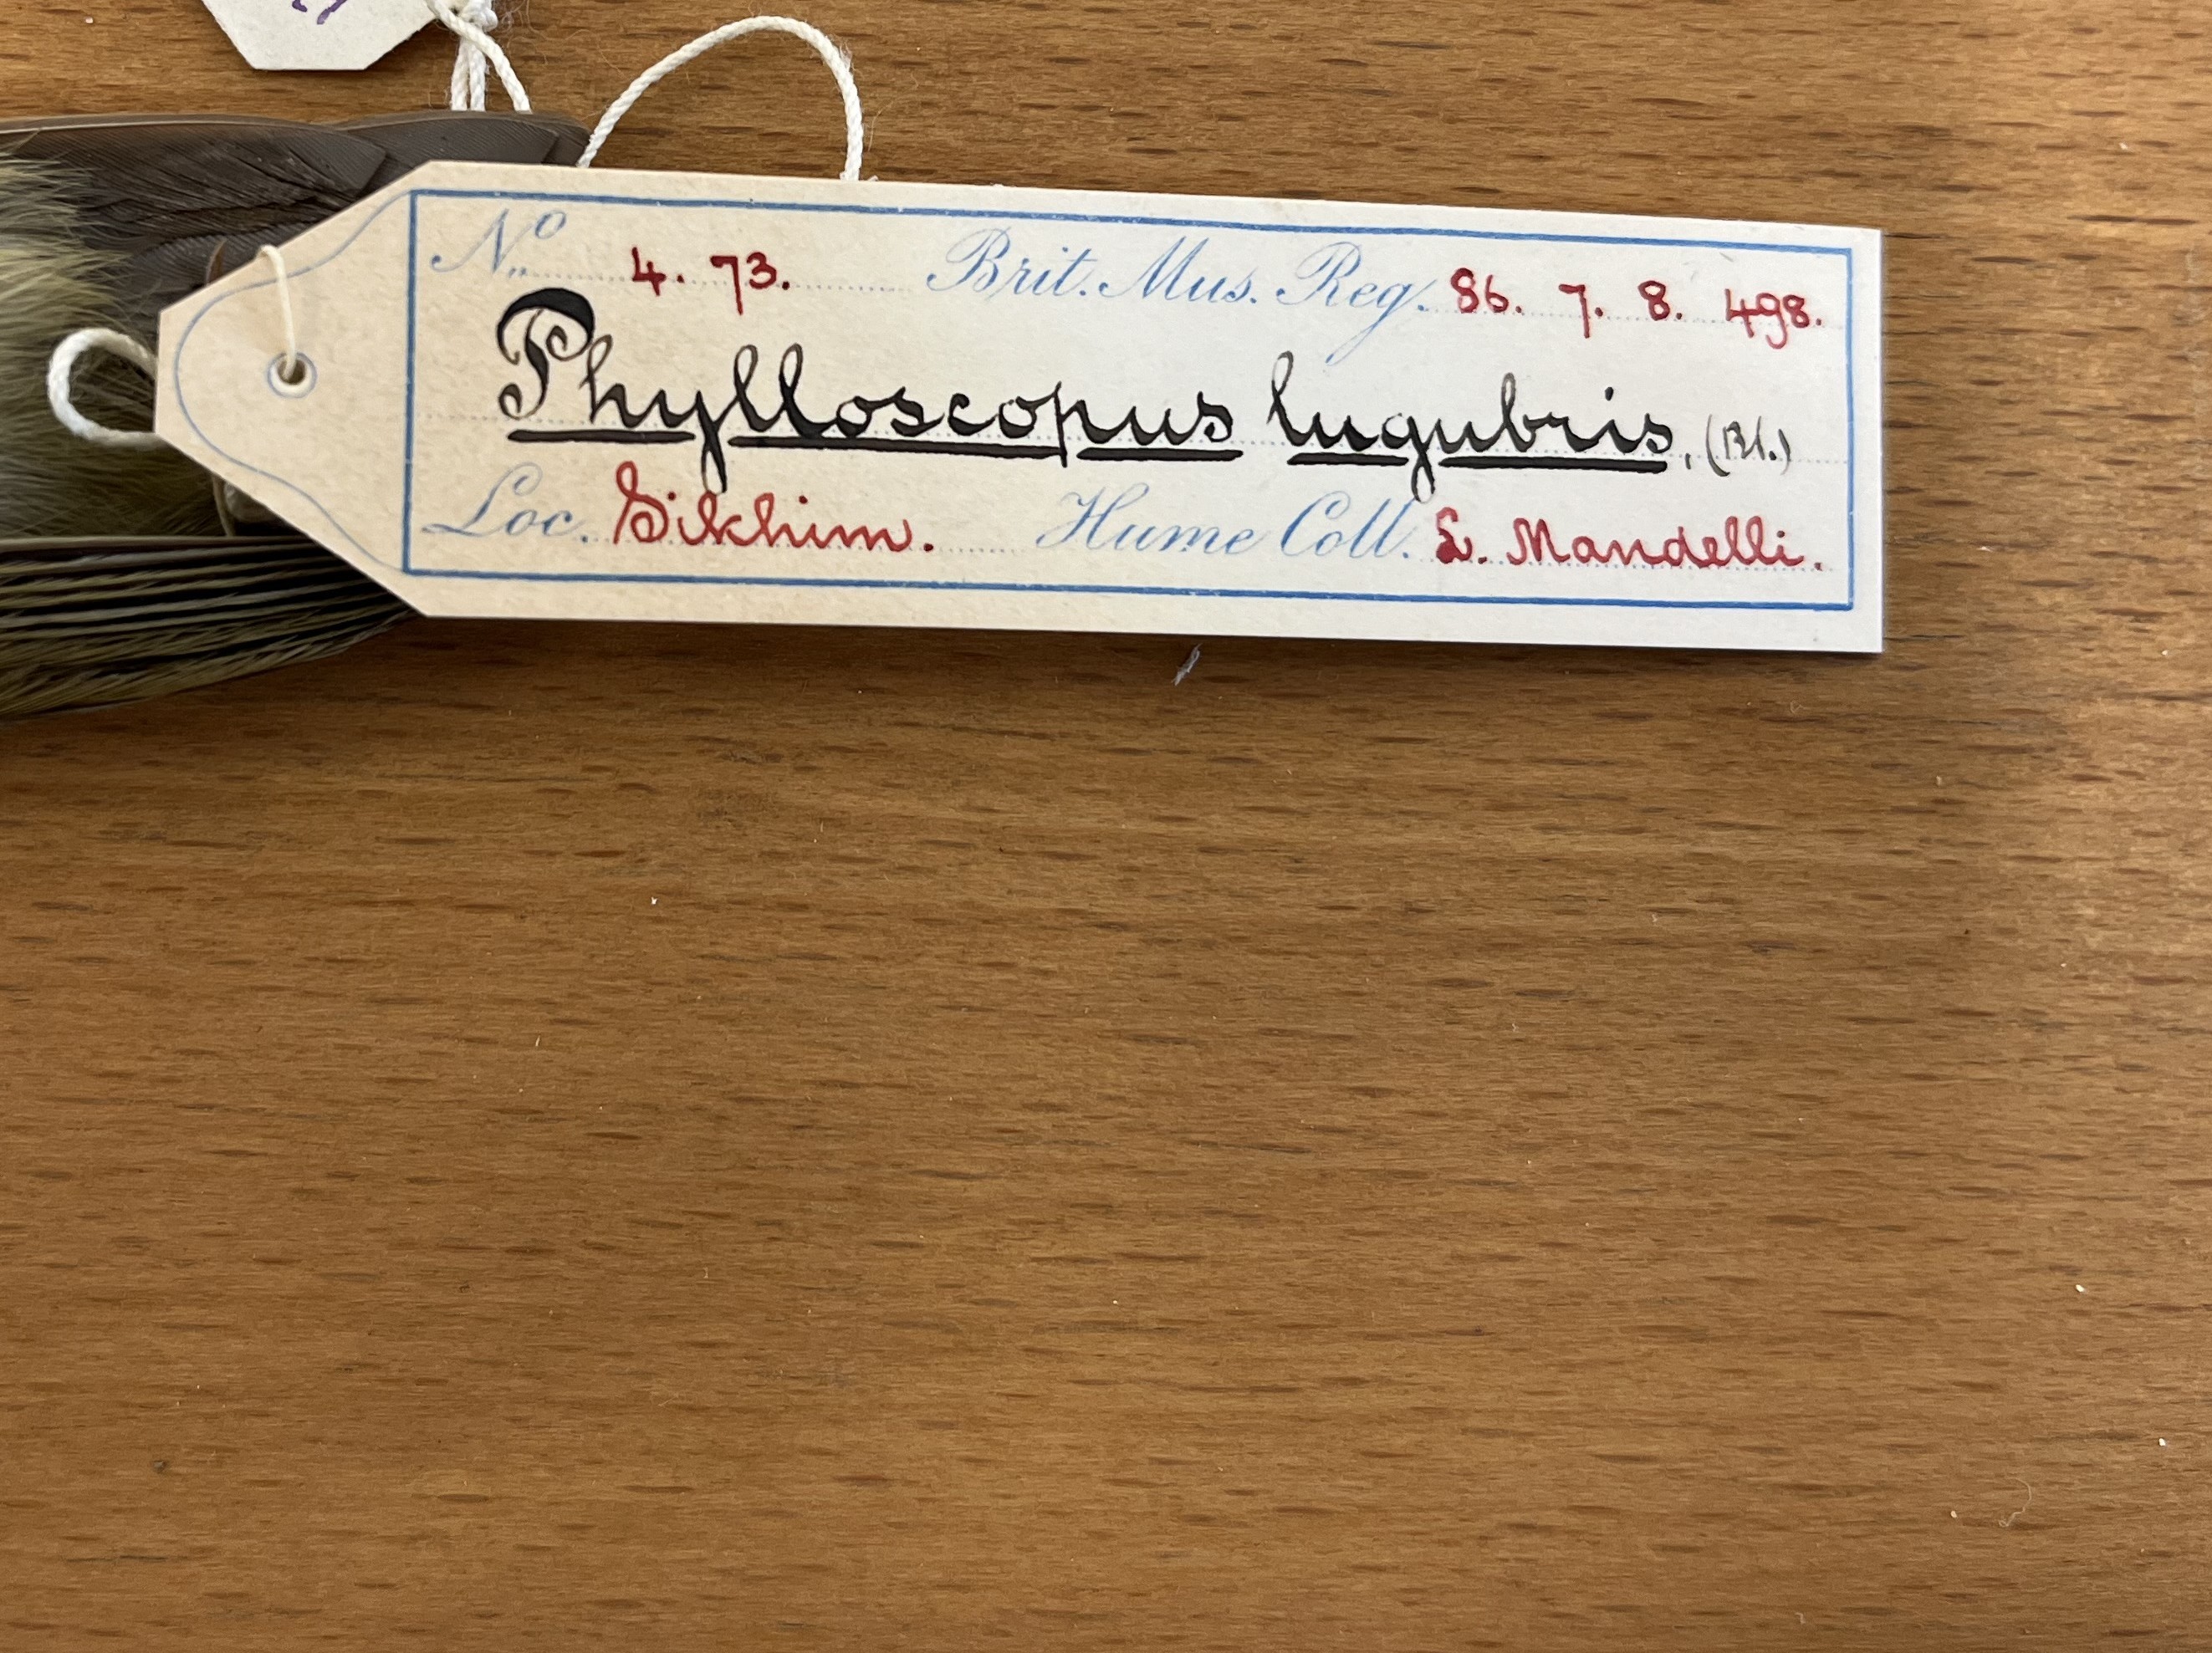 No 4. 73. Brit. Mus. Reg. 86. 7. 8. 498.
Phylloscopus lugubris, (Bl.)
Loc. Sikhim. Hume Coll. L. Mandelli.